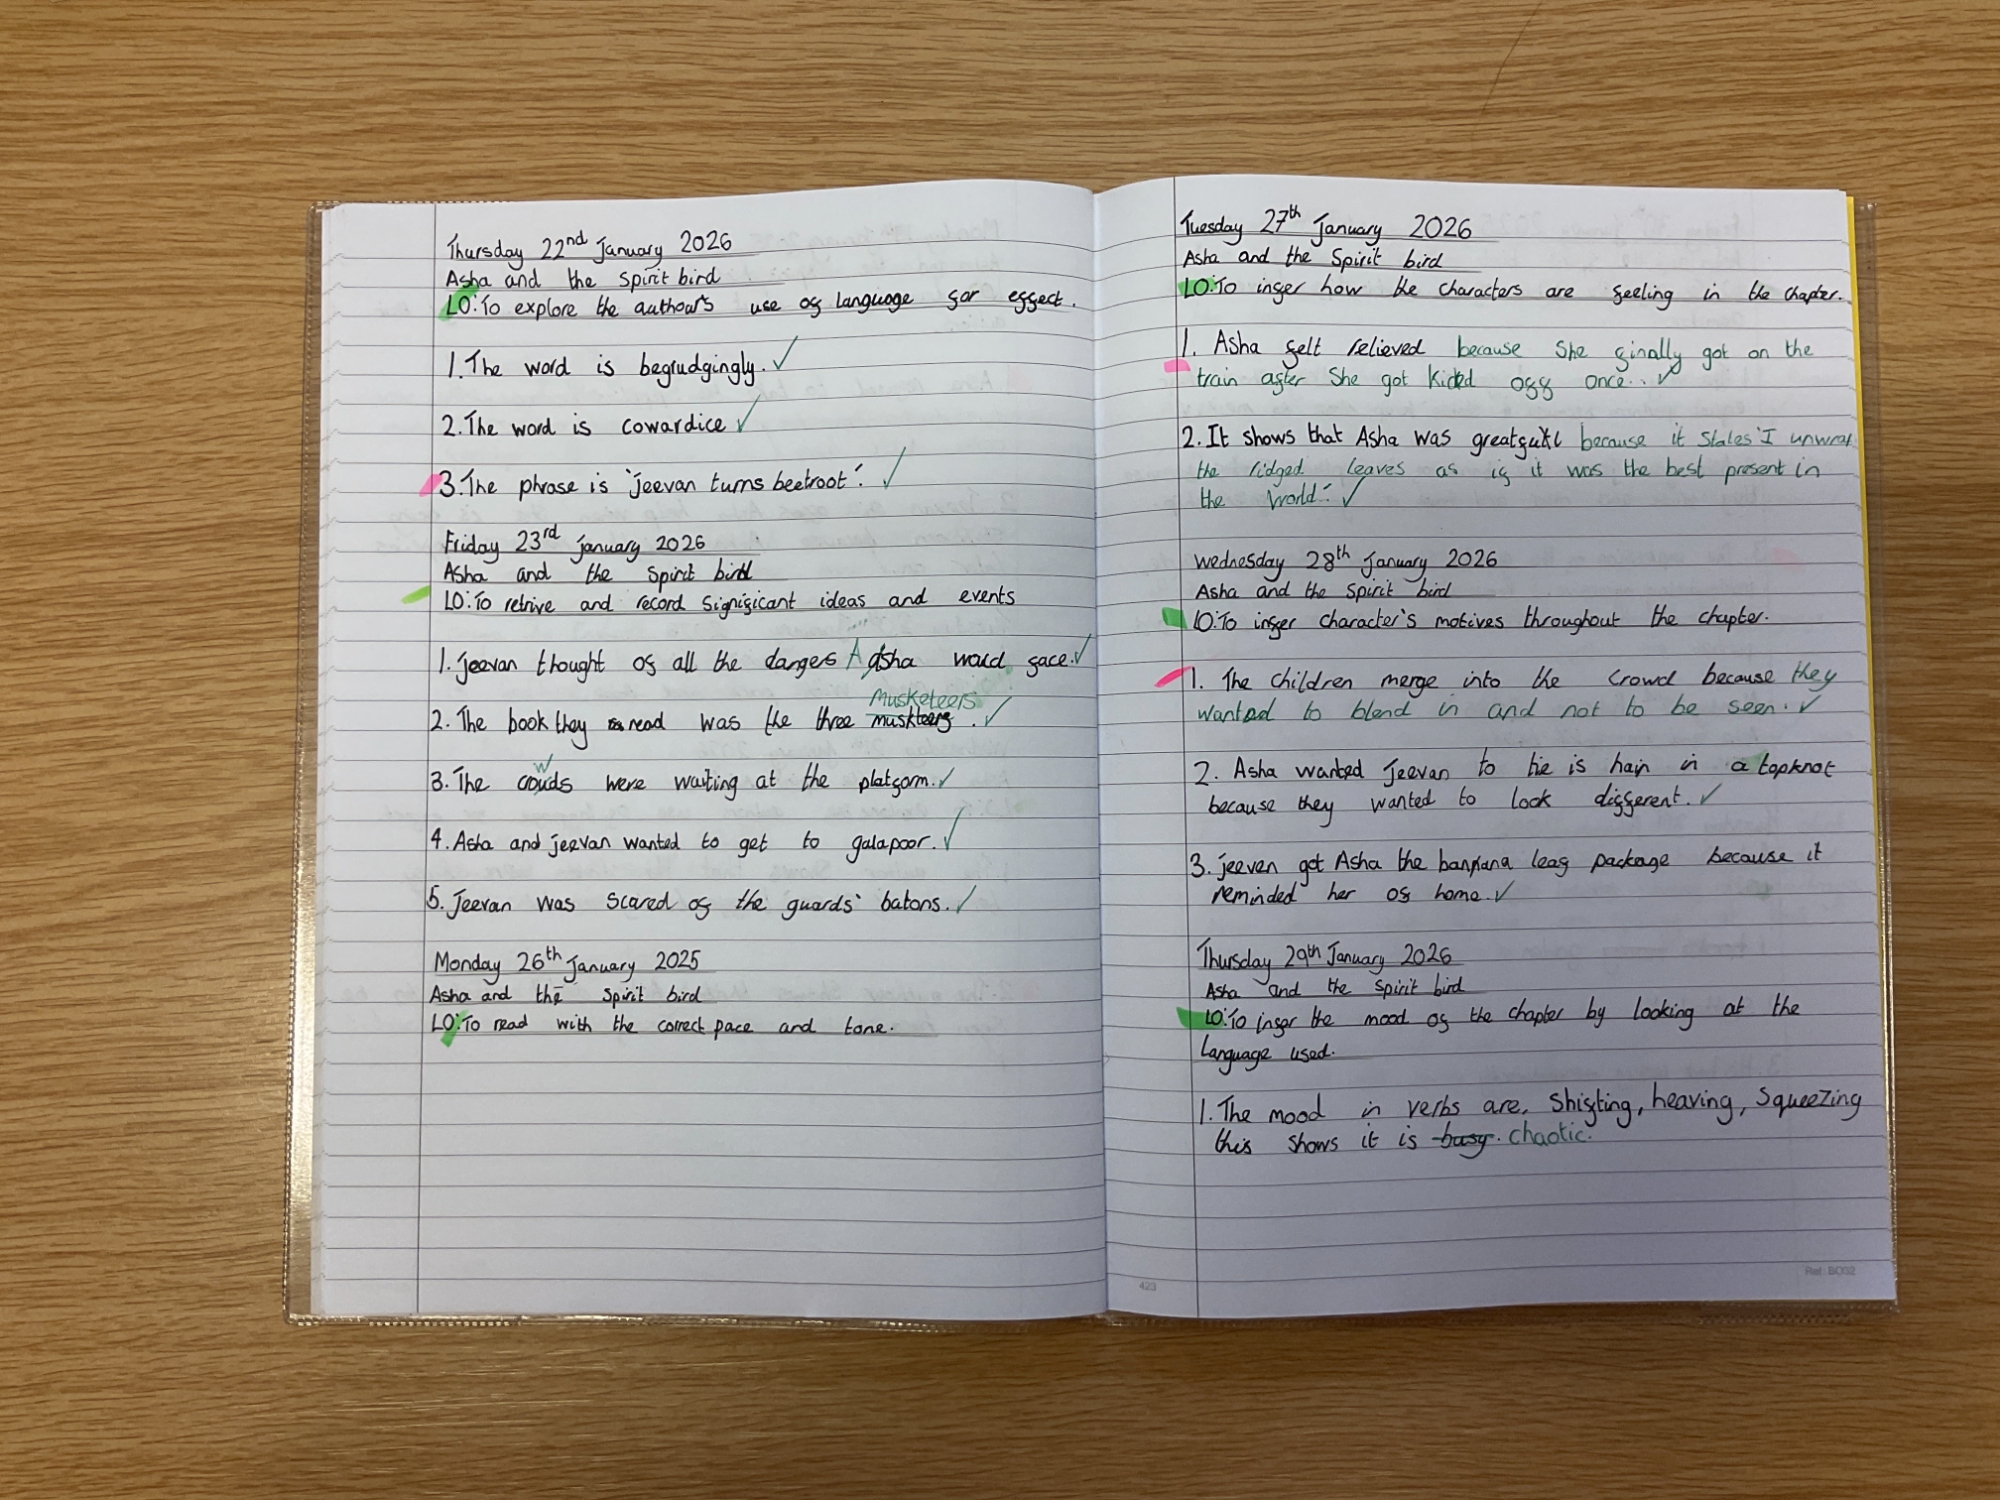 Thursday 22nd January 2026
Asha and the Spirit bird
LO:To explore the author's use of language for effect.
1.The word is begrudgingly.✓
2.The word is cowardice ✓
3.The phrase is 'jeevan turns beetroot'. ✓
Friday 23rd January 2026
Asha and the Spirit bird
LO:To retrive and record significant ideas and events
1.Jeevan thought of all the dangers Asha would face.✓
Musketeers
2. The book they read was the three muskteers. ✓
w
3.The crouds were waiting at the platform.✓
4.Asha and jeevan wanted to get to galapoor.✓
5.Jeevan was scared of the guards' batons.✓
Monday 26th January 2025
Asha and the Spirit bird
LO:To read with the correct pace and tone.
Tuesday 27th January 2026
Asha and the Spirit bird
LO:To infer how the characters are feeling in the chapter.
1. Asha felt relieved because She finally got on the
train after She got kicked off once. ✓
2.It shows that Asha was greatful because it States 'I unwrap
the ridged leaves as if it was the best present in
the world'. ✓
Wednesday 28th January 2026
Asha and the Spirit bird
LO:To infer character's motives throughout the chapter.
1. The children merge into the crowd because they
wanted to blend in and not to be seen. ✓
2. Asha wanted Jeevan to tie is hair in a topknot
because they wanted to look different.✓
3. jeeven got Asha the banana leaf package because it
reminded her of home.✓
Thursday 29th January 2026
Asha and the Spirit bird
LO:To infer the mood of the chapter by looking at the
language used.
1.The mood in verbs are, Shifting, heaving, squeezing
this shows it is busy. chaotic.
423
Ref: BO32